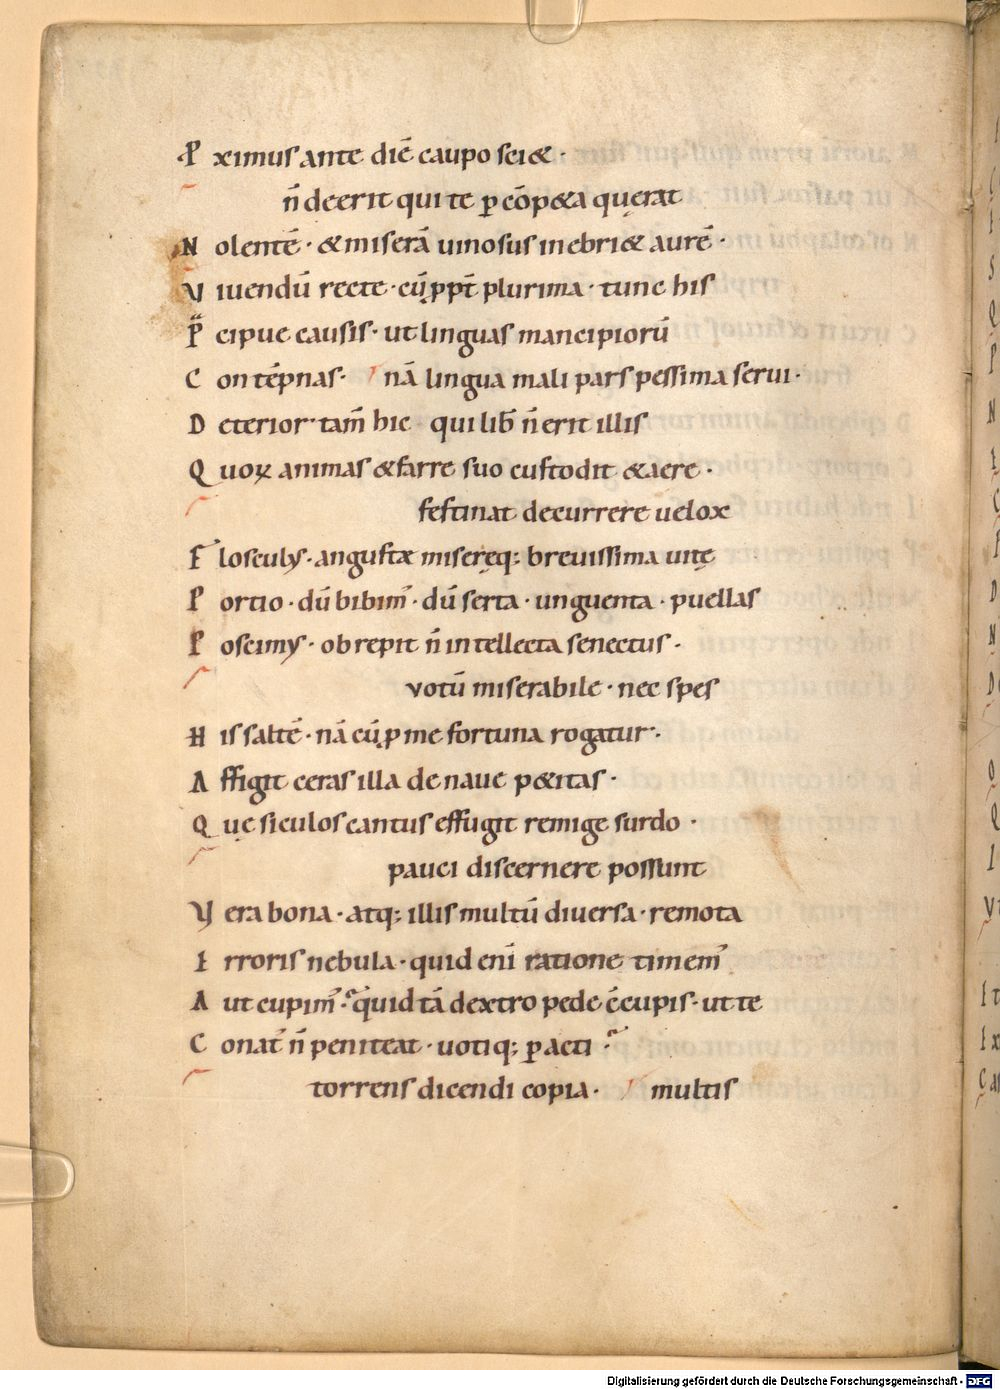 P ximus ante diē caupo sci&·
n̄ deerit qui te ꝑ cōp&a quęrat
N olentē· & miserā uinosus inebri& aurē·
V iuendū recte· cū ꝓpt̄ plurima· tunc his
P̄ cipue causis· ut linguas mancipiorū
C ontēpnas· nā lingua mali pars pessima serui·
D eterior· tam̄ hic qui lib̄ n̄ erit illis
Q uoꝝ animas & farre suo custodit & aere·
festinat decurrere uelox
F losculꝰ· angustæ miseręq; breuissima uitę
P ortio· dū bibim̄· dū serta· unguenta· puellas
P oscimꝰ· obrepit n̄ intellecta senectus·
votū miserabile· nec spes
H is saltē· nā cū ꝓ me fortuna rogatur·
A ffigit ceras illa de naue p&itas·
Q uę siculos cantus effugit remige surdo·
pauci discernere possunt
V era bona· atq; illis multū diuersa· remota
E rroris nebula· quid eni̅ ratione timem̄
A ut cupim̄· quid tā dextro pede c̄cupis· ut te
C onat̄ n̄ peniteat· uotiq; ꝑacti
torrens dicendi copia· multis
Digitalisierung gefördert durch die Deutsche Forschungsgemeinschaft - DFG